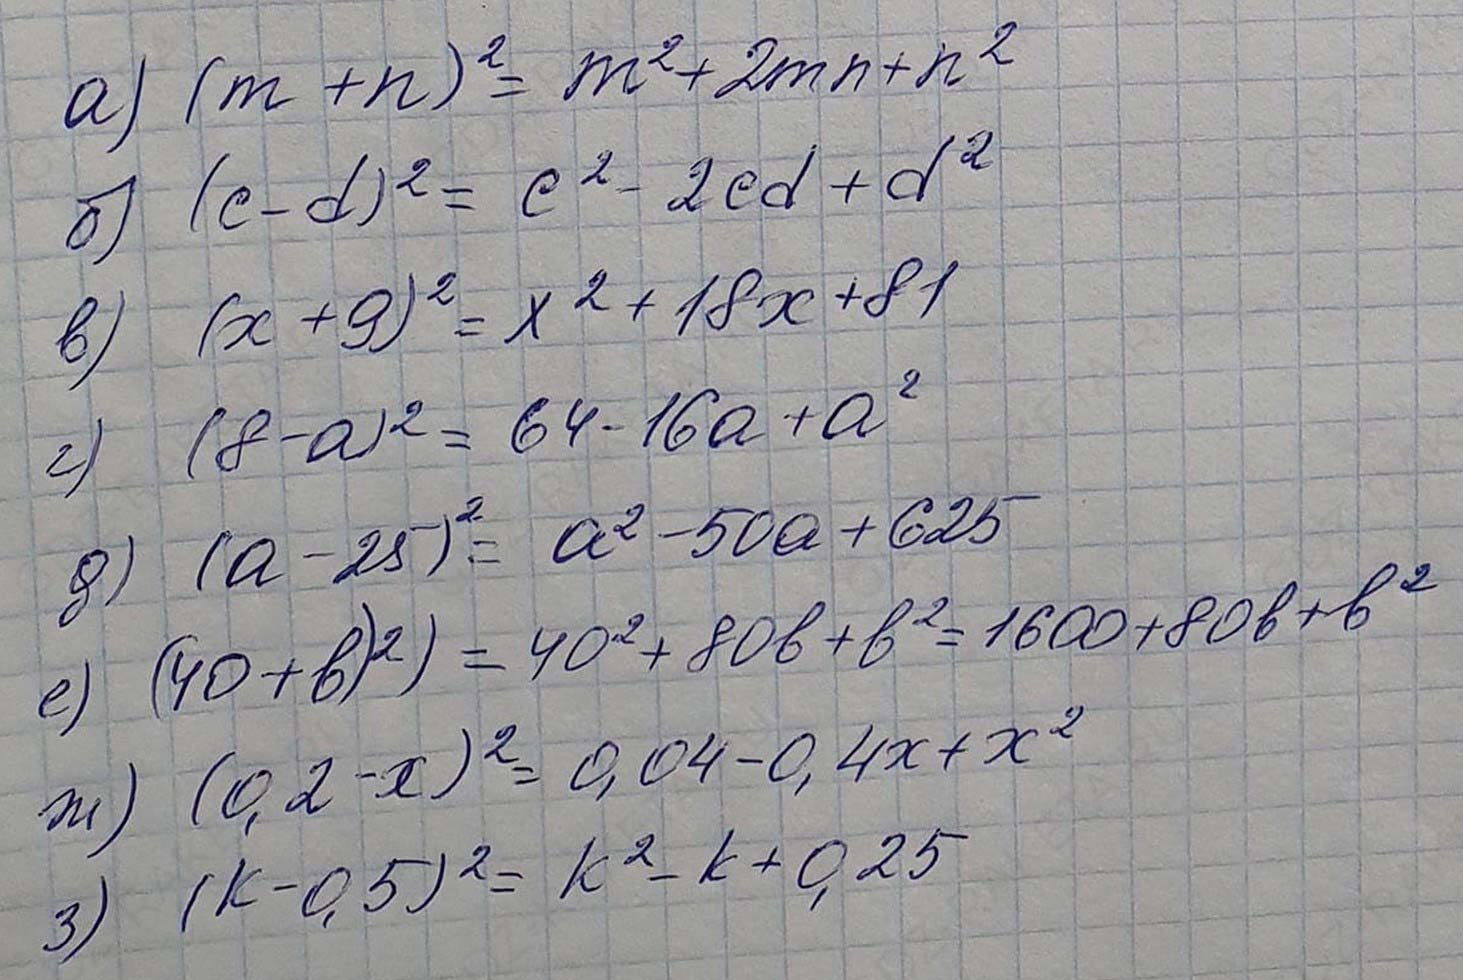 а) (m + n)² = m² + 2mn + n²
б) (c - d)² = c² - 2cd + d²
в) (x + 9)² = x² + 18x + 81
г) (8 - a)² = 64 - 16a + a²
д) (a - 25)² = a² - 50a + 625
е) (40 + b)²) = 40² + 80b + b² = 1600 + 80b + b²
ж) (0,2 - x)² = 0,04 - 0,4x + x²
з) (k - 0,5)² = k² - k + 0,25